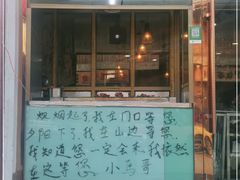 炊烟起了我在门口等您
夕阳下了我在山边等您
我知道您一定会来我依然
在这等您 小鸟哥